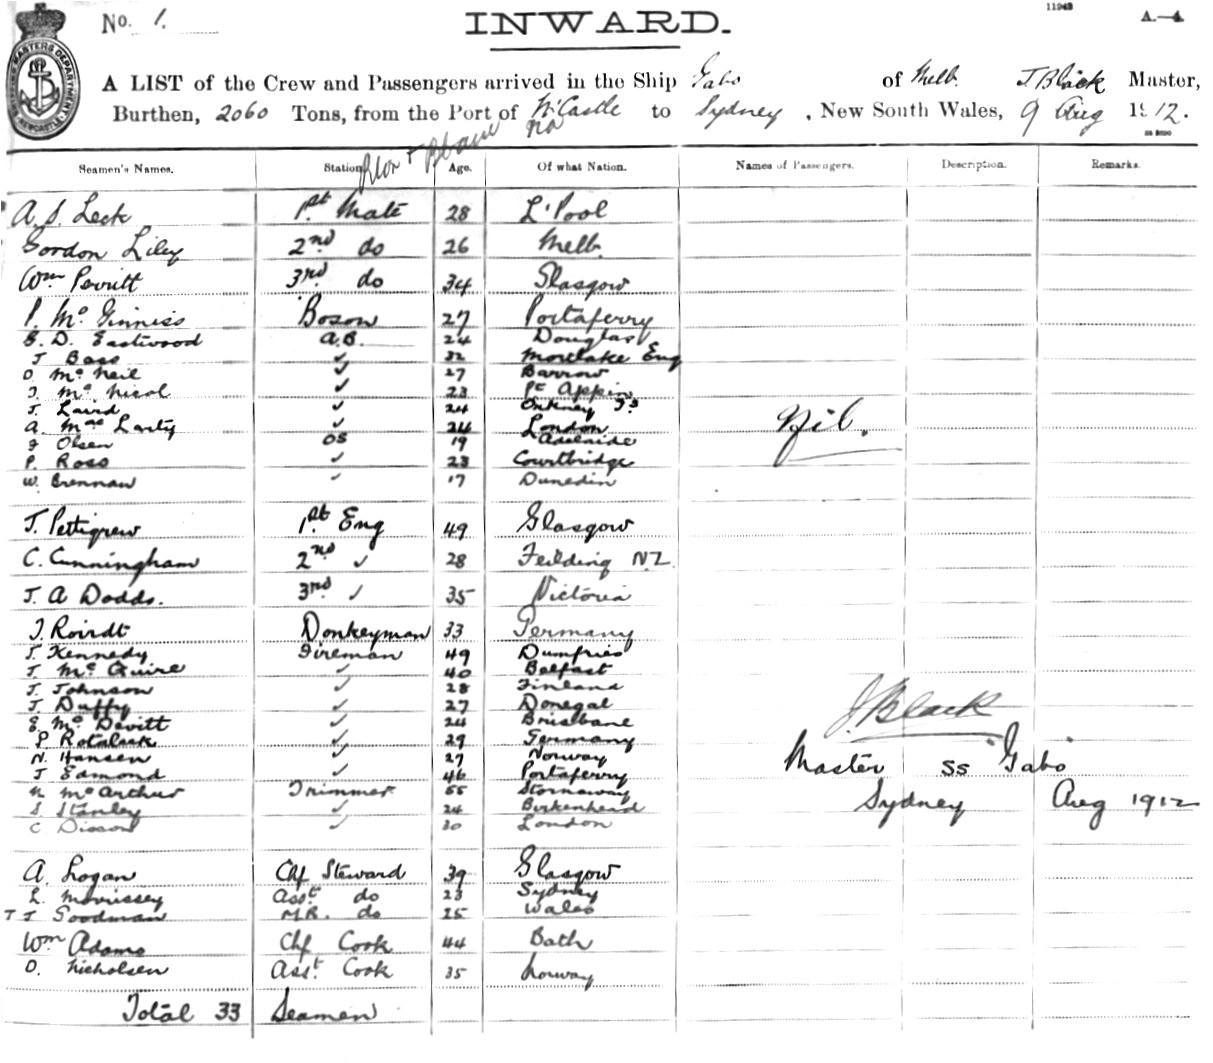 No. 1.
INWARD.
11943
A.—4.
MASTERS DEPARTMENT
NEWCASTLE
A LIST of the Crew and Passengers arrived in the Ship Gabo of Melb. J Black Master,
Burthen, 2060 Tons, from the Port of N'Castle to Sydney, New South Wales, 9 Aug 1912.
Seamen's Names. Station. Age. Of what Nation. Names of Passengers. Description. Remarks.
A. S. Leck 1st Mate 28 L'Pool
Gordon Liley 2nd do 26 Melb.
Wm Perritt 3rd do 34 Glasgow
P. Mc Ginniss Boson 27 Portaferry
E. D. Eastwood A.B. 24 Douglas
J Bass ✓ 32 Mortlake Eng
D Mc Neil ✓ 27 Barrow
D. Mc Nicol ✓ 23 Pt Appin
J. Laird ✓ 24 Orkney Is
A. Mac Larty ✓ 24 London
J Olsen OS 19 Adelaide
P. Ross ✓ 23 Courtbridge
W. Brennan ✓ 17 Dunedin
Nil.
J. Pettigrew 1st Eng 49 Glasgow
C. Cunningham 2nd ✓ 28 Feilding N.Z.
J. A Dodds. 3rd ✓ 35 Victoria
J. Roirdt Donkeyman 33 Germany
J. Kennedy Fireman 49 Dumfries
J. Mc Guire ✓ 40 Belfast
J. Johnson ✓ 28 Finland
J Duffy ✓ 27 Donegal
E. Mc Devitt ✓ 24 Brisbane
P Rotalack ✓ 29 Germany
N. Hansen ✓ 27 Norway
J Edmond ✓ 46 Portaferry
N McArthur Trimmer 55 Stornaway
S. Stanley ✓ 24 Birkenhead
C Disson ✓ 30 London
J Black
Master SS "Gabo"
Sydney Aug 1912
A. Logan Chf Steward 39 Glasgow
L. Morrissey Asst do 23 Sydney
T J Goodman M.R. do 25 Wales
Wm Adams Chf Cook 44 Bath
O. Nicholsen Asst Cook 35 Norway
Total 33 Seamen